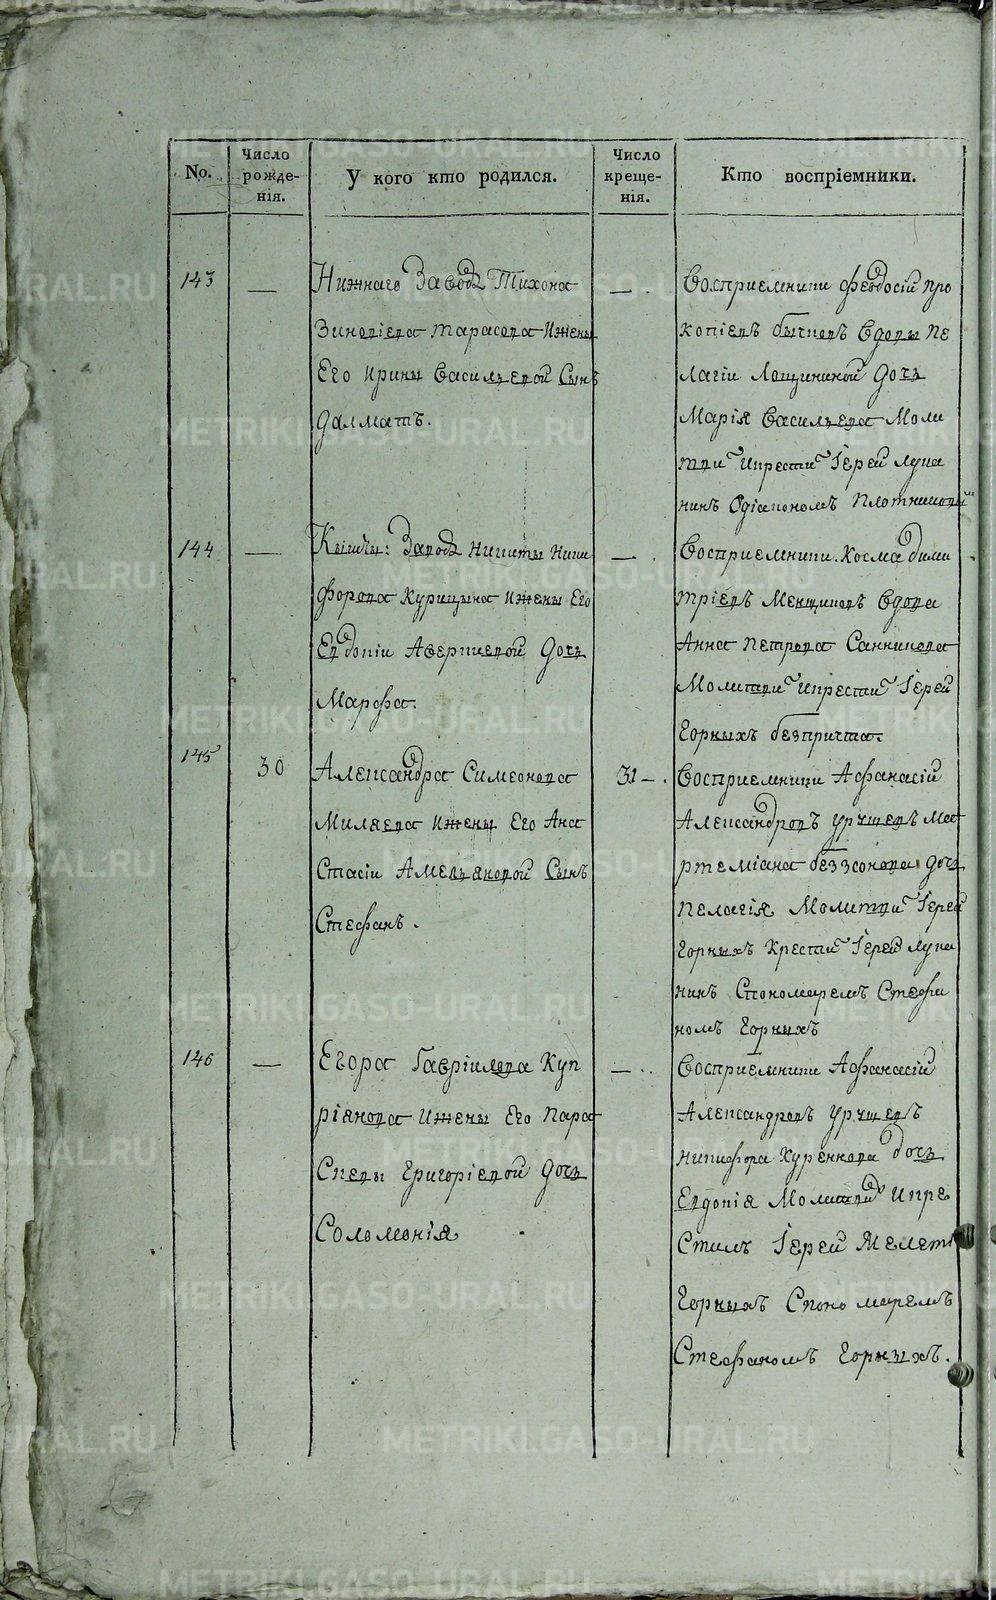 No.
Число рожденія.
У кого кто родился.
Число крещенія.
Кто воспріемники.
143
—
Нижнаго Завода Тихона
Зиновіева Тарасова Ижены
Его Ирины Васильевой Сынъ
Далматъ.
—
Восприемники Феодосій Про
копіевъ Бычковъ Вдовы Пе
лагіи Лощининой Дочь
Марія Васильева Моли
тви Икрести Іерей Лука
нинъ Сдіакономъ Плотниковы
144
—
Кышты: Завода Никиты Ники
форова Курицына Ижены Его
Евдокіи Аверкиевой Дочь
Марфа.
—
Восприемники. Косма Дими
тріевъ Меншиковъ Вдова
Анна Петрова Санникова
Молитви Икрести Іерей
Горныхъ безпричта.
145
30
Александра Симеонова
Миляева Ижены Его Ана
Стасіи Амельяновой Сынъ
Стефанъ.
31
Восприемники Афанасій
Александровъ Ма
ртеміана беззонова Дочь
Пелагія Молитви Іерей
Горныхъ Крести Іерей Лука
нинъ Спономаремъ Стефа
номъ Горныхъ
146
—
Егора Гавріилова Куп
ріянова Ижены Его Пара
Скевы Григоріевой Дочь
Соломонія
—
Восприемники Афанасій
Александровъ
Никифора Куренкова Дочь
Евдокія Молитви Икре
Стилъ Іерей Мелеті
Горныхъ Споно маремъ
Стефаномъ Горныхъ.
METRIKI.GASO-URAL.RU